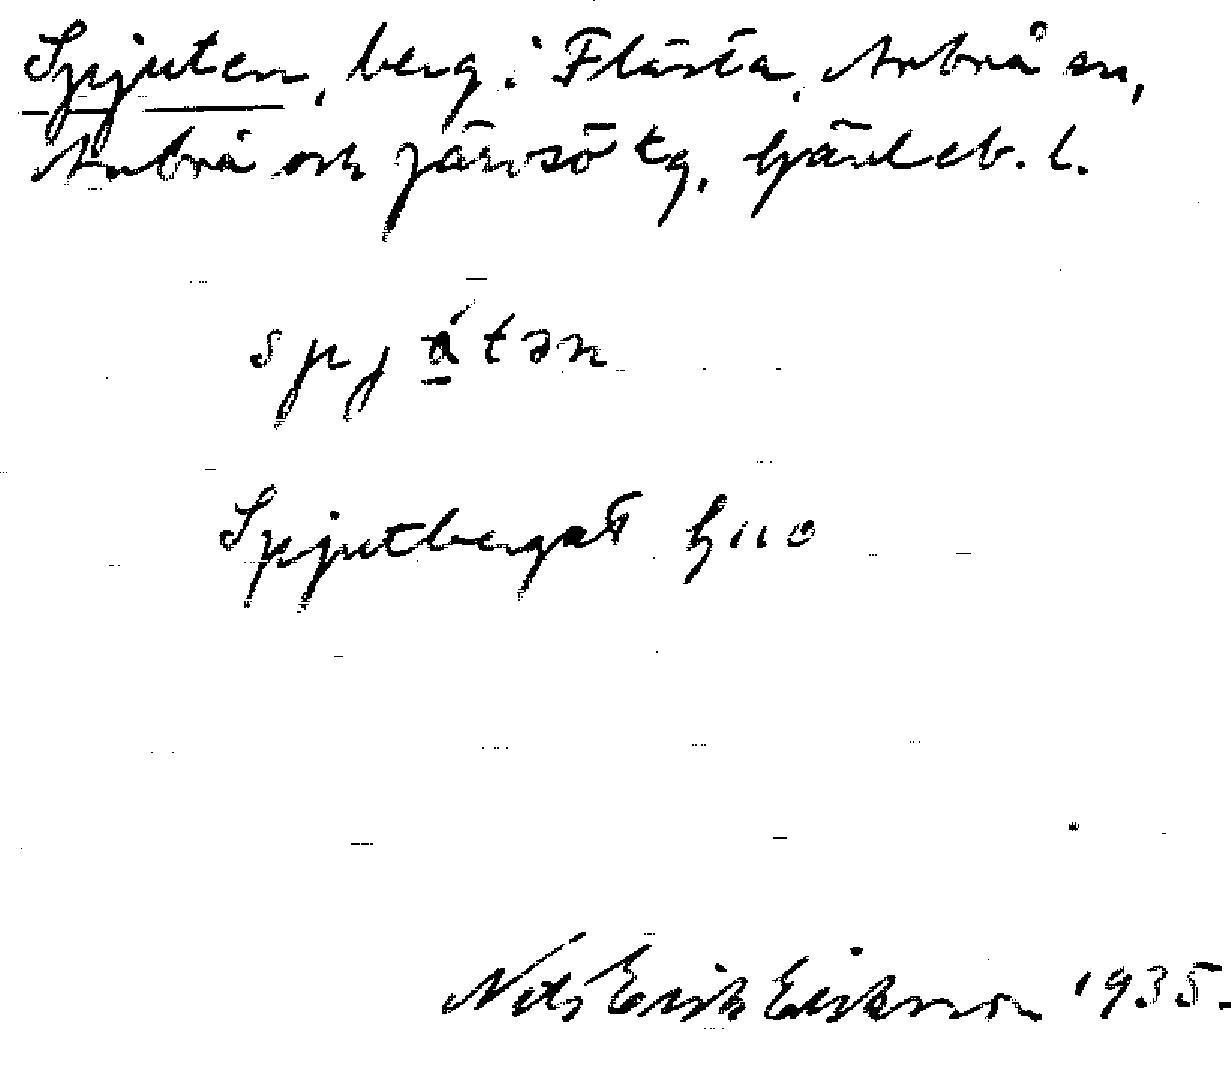 Spjuten, berg i Flästa, Arbrå sn,
Arbrå och Järvsö tg, Gävleb. l.
spjután
Spjutberget
Nils Erik Eriksson 1935.